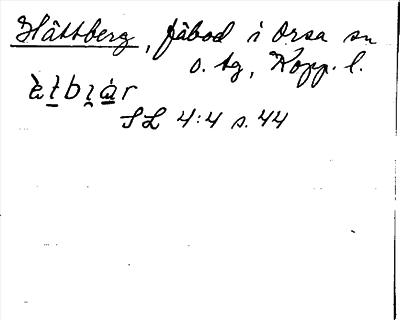 Håttberg, fäbod i Orsa sn
o. tg, Kopp. l.
ὲt̠bi̯á̠r
SL 4:4 s. 44